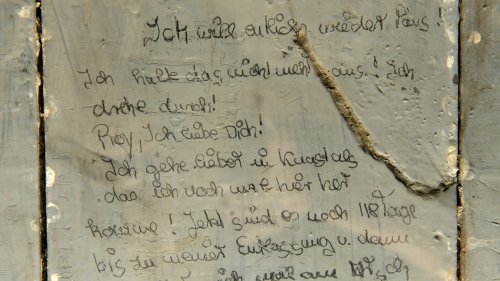 Ich will endlich wieder raus!
Ich halte das nicht mehr aus! Ich
drehe durch!
Roy, Ich liebe Dich!
Ich gehe lieber in Knast als
das ich noch mal hier her
komme! Jetzt sind es noch 118 Tage
bis zu meiner Entlassung u. dann
ich mal am